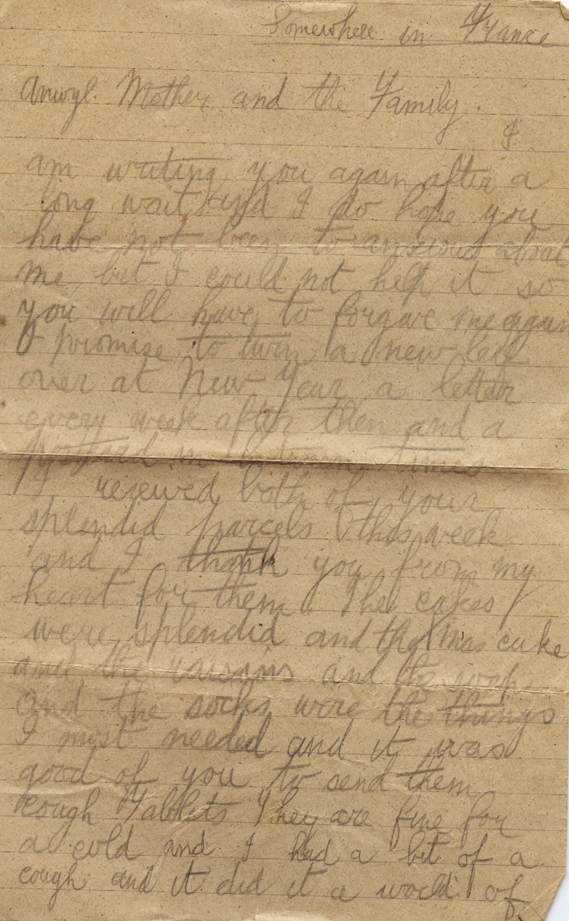 Somewhere in France
Anwyl Mother and the Family.
I
am writing you again after a
long wait and I do hope you
have not been to anxious about
me, but I could not help it so
you will have to forgave me again
I promise to turn a new leaf
over at New Year, a letter
every week after then and a
postcard in between times
I reseived both of your
splendid parcels this week
and I thank you from my
heart for them. The cakes
were splendid and the Xmas cake
and the raisins and the
and the socks were the things
I most needed and it was
good of you to send them
cough Tablets They are fine for
a cold and I had a bit of a
cough and it did it a world of